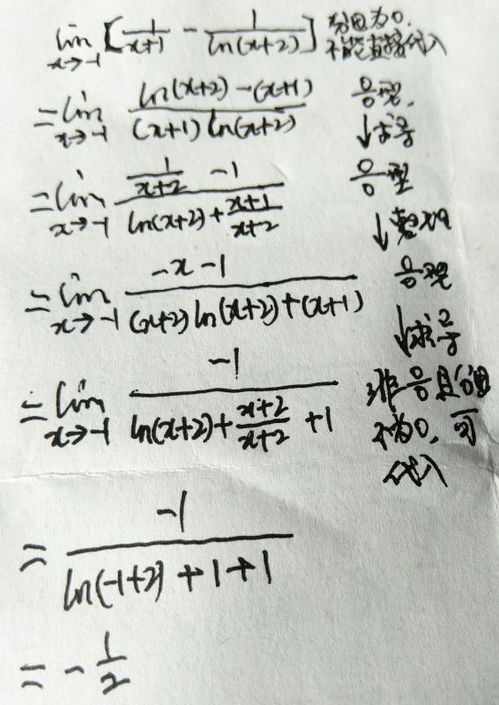 lim x→-1 [1/(x+1) - 1/ln(x+2)] 分母为0,
不能直接代入
= lim x→-1 (ln(x+2)-(x+1))/((x+1)ln(x+2)) 0/0型,
↓求导
= lim x→-1 (1/(x+2) -1)/(ln(x+2)+(x+1)/(x+2)) 0/0型
↓整理
= lim x→-1 (-x-1)/((x+2)ln(x+2)+(x+1)) 0/0型
↓求导
= lim x→-1 -1/(ln(x+2)+(x+2)/(x+2)+1) 非0/0且分母
不为0,可
代入
= -1/(ln(-1+2)+1+1)
= -1/2